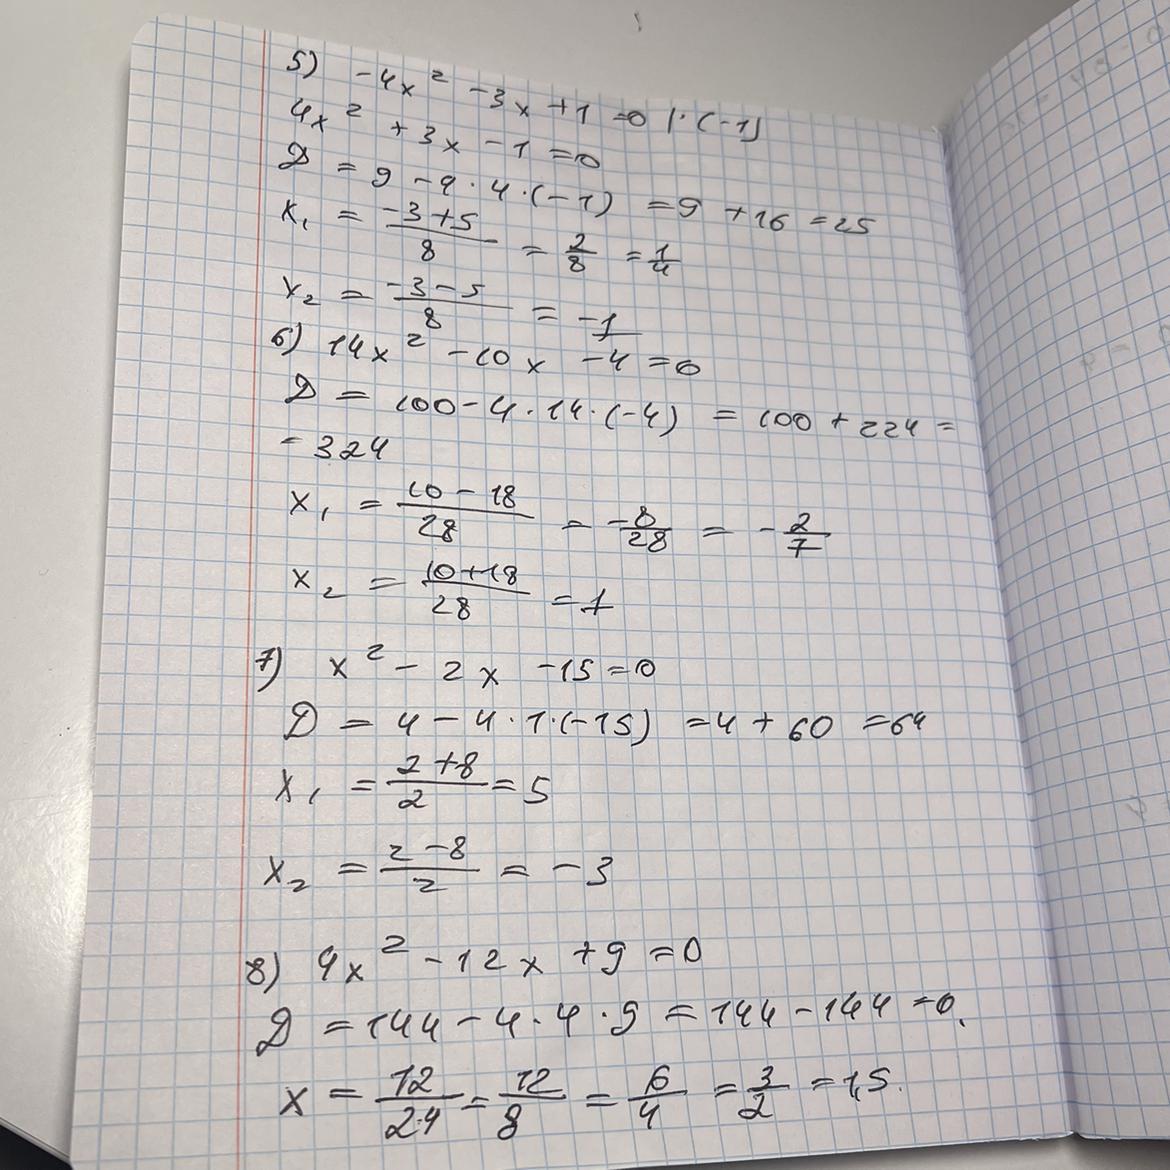 5) -4x² -3x +1 =0 |·(-1)
4x² +3x -1 =0
D = 9 -4·4·(-1) =9 +16 =25
x₁ = (-3+5)/8 = 2/8 = 1/4
x₂ = (-3-5)/8 = -1
6) 14x² -10x -4 =0
D = 100 -4·14·(-4) = 100 + 224 =
= 324
x₁ = (10-18)/28 = -8/28 = -2/7
x₂ = (10+18)/28 = 1
7) x² - 2x -15 =0
D = 4 - 4·1·(-15) =4 + 60 =64
x₁ = (2+8)/2 = 5
x₂ = (2-8)/2 = -3
8) 4x² -12x +9 =0
D =144 -4·4·9 = 144 -144 =0.
x = 12/2·4 = 12/8 = 6/4 = 3/2 =1,5.